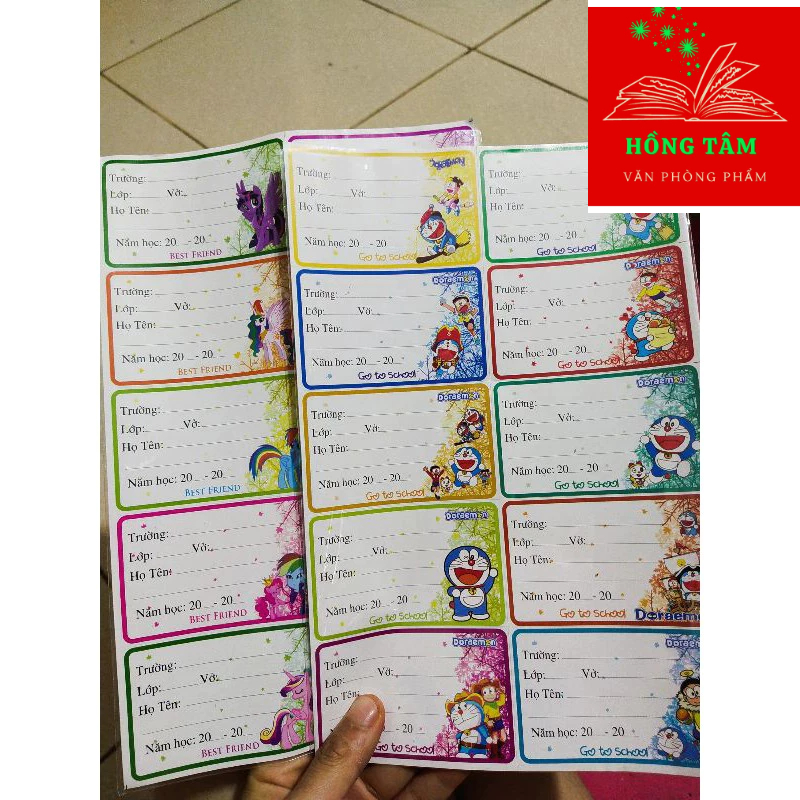 HỒNG TÂM
VĂN PHÒNG PHẨM
Trường:
Lớp: Vở:
Họ Tên:
Năm học: 20 - 20
BEST FRIEND
Trường:
Lớp: Vở:
Họ Tên:
Năm học: 20 - 20
BEST FRIEND
Trường:
Lớp: Vở:
Họ Tên:
Năm học: 20 - 20
BEST FRIEND
Trường:
Lớp: Vở:
Họ Tên:
Năm học: 20 - 20
BEST FRIEND
Trường:
Lớp: Vở:
Họ Tên:
Năm học: 20 - 20
BEST FRIEND
Doraemon
Trường:
Lớp: Vở:
Họ Tên:
Năm học: 20 - 20
Go to School
Doraemon
Trường:
Lớp: Vở:
Họ Tên:
Năm học: 20 - 20
Go to School
Doraemon
Trường:
Lớp: Vở:
Họ Tên:
Năm học: 20 - 20
Go to School
Doraemon
Trường:
Lớp: Vở:
Họ Tên:
Năm học: 20 - 20
Go to School
Doraemon
Trường:
Lớp: Vở:
Họ Tên:
- 20
Go to School
Trường:
Lớp: Vở:
Họ Tên:
Năm học: 20 - 20
Go to School
Doraemon
Trường:
Lớp: Vở:
Họ Tên:
Năm học: 20 - 20
Go to School
Doraemon
Trường:
Lớp: Vở:
Họ Tên:
Năm học: 20 - 20
Go to School
Trường:
Lớp: Vở:
Họ Tên:
Năm học: 20 - 20
Go to School
Doraemon
Doraemon
Trường:
Lớp: Vở:
Họ Tên:
Năm học: 20 - 20
Go to School